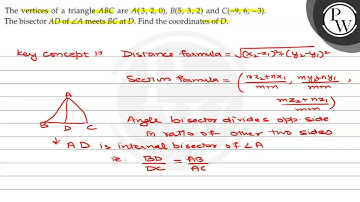 The vertices of a triangle ABC are A(3, 2, 0), B(5, 3, 2) and C(−9, 6, −3).
The bisector AD of ∠A meets BC at D. Find the coordinates of D.
Key concept :- Distance formula = √(x₂-x₁)²+(y₂-y₁)²
Section formula = (mx₂+nx₁/m+n, my₂+ny₁/m+n,
mz₂+nz₁/m+n)
A
B D C
Angle bisector divides opp. side
in ratio of other two sides
↓ AD is internal bisector of ∠A
i.e. BD/DC = AB/AC